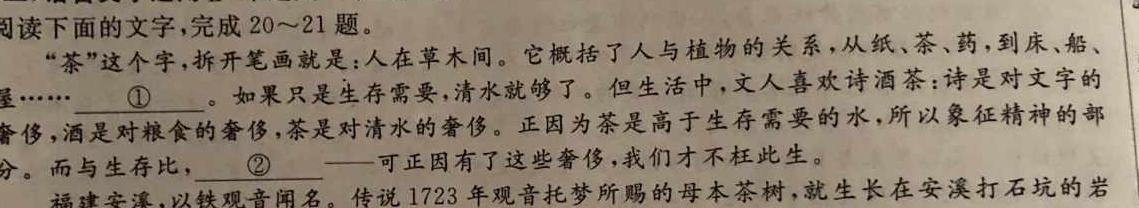 阅读下面的文字,完成20～21题。
“茶”这个字,拆开笔画就是:人在草木间。它概括了人与植物的关系,从纸、茶、药,到床、船、
屋……　①　。如果只是生存需要,清水就够了。但生活中,文人喜欢诗酒茶:诗是对文字的
奢侈,酒是对粮食的奢侈,茶是对清水的奢侈。正因为茶是高于生存需要的水,所以象征精神的部
分。而与生存比,　②　——可正因有了这些奢侈,我们才不枉此生。
福建安溪,以铁观音闻名。传说1723年观音托梦所赐的母本茶树,就生长在安溪打石坑的岩